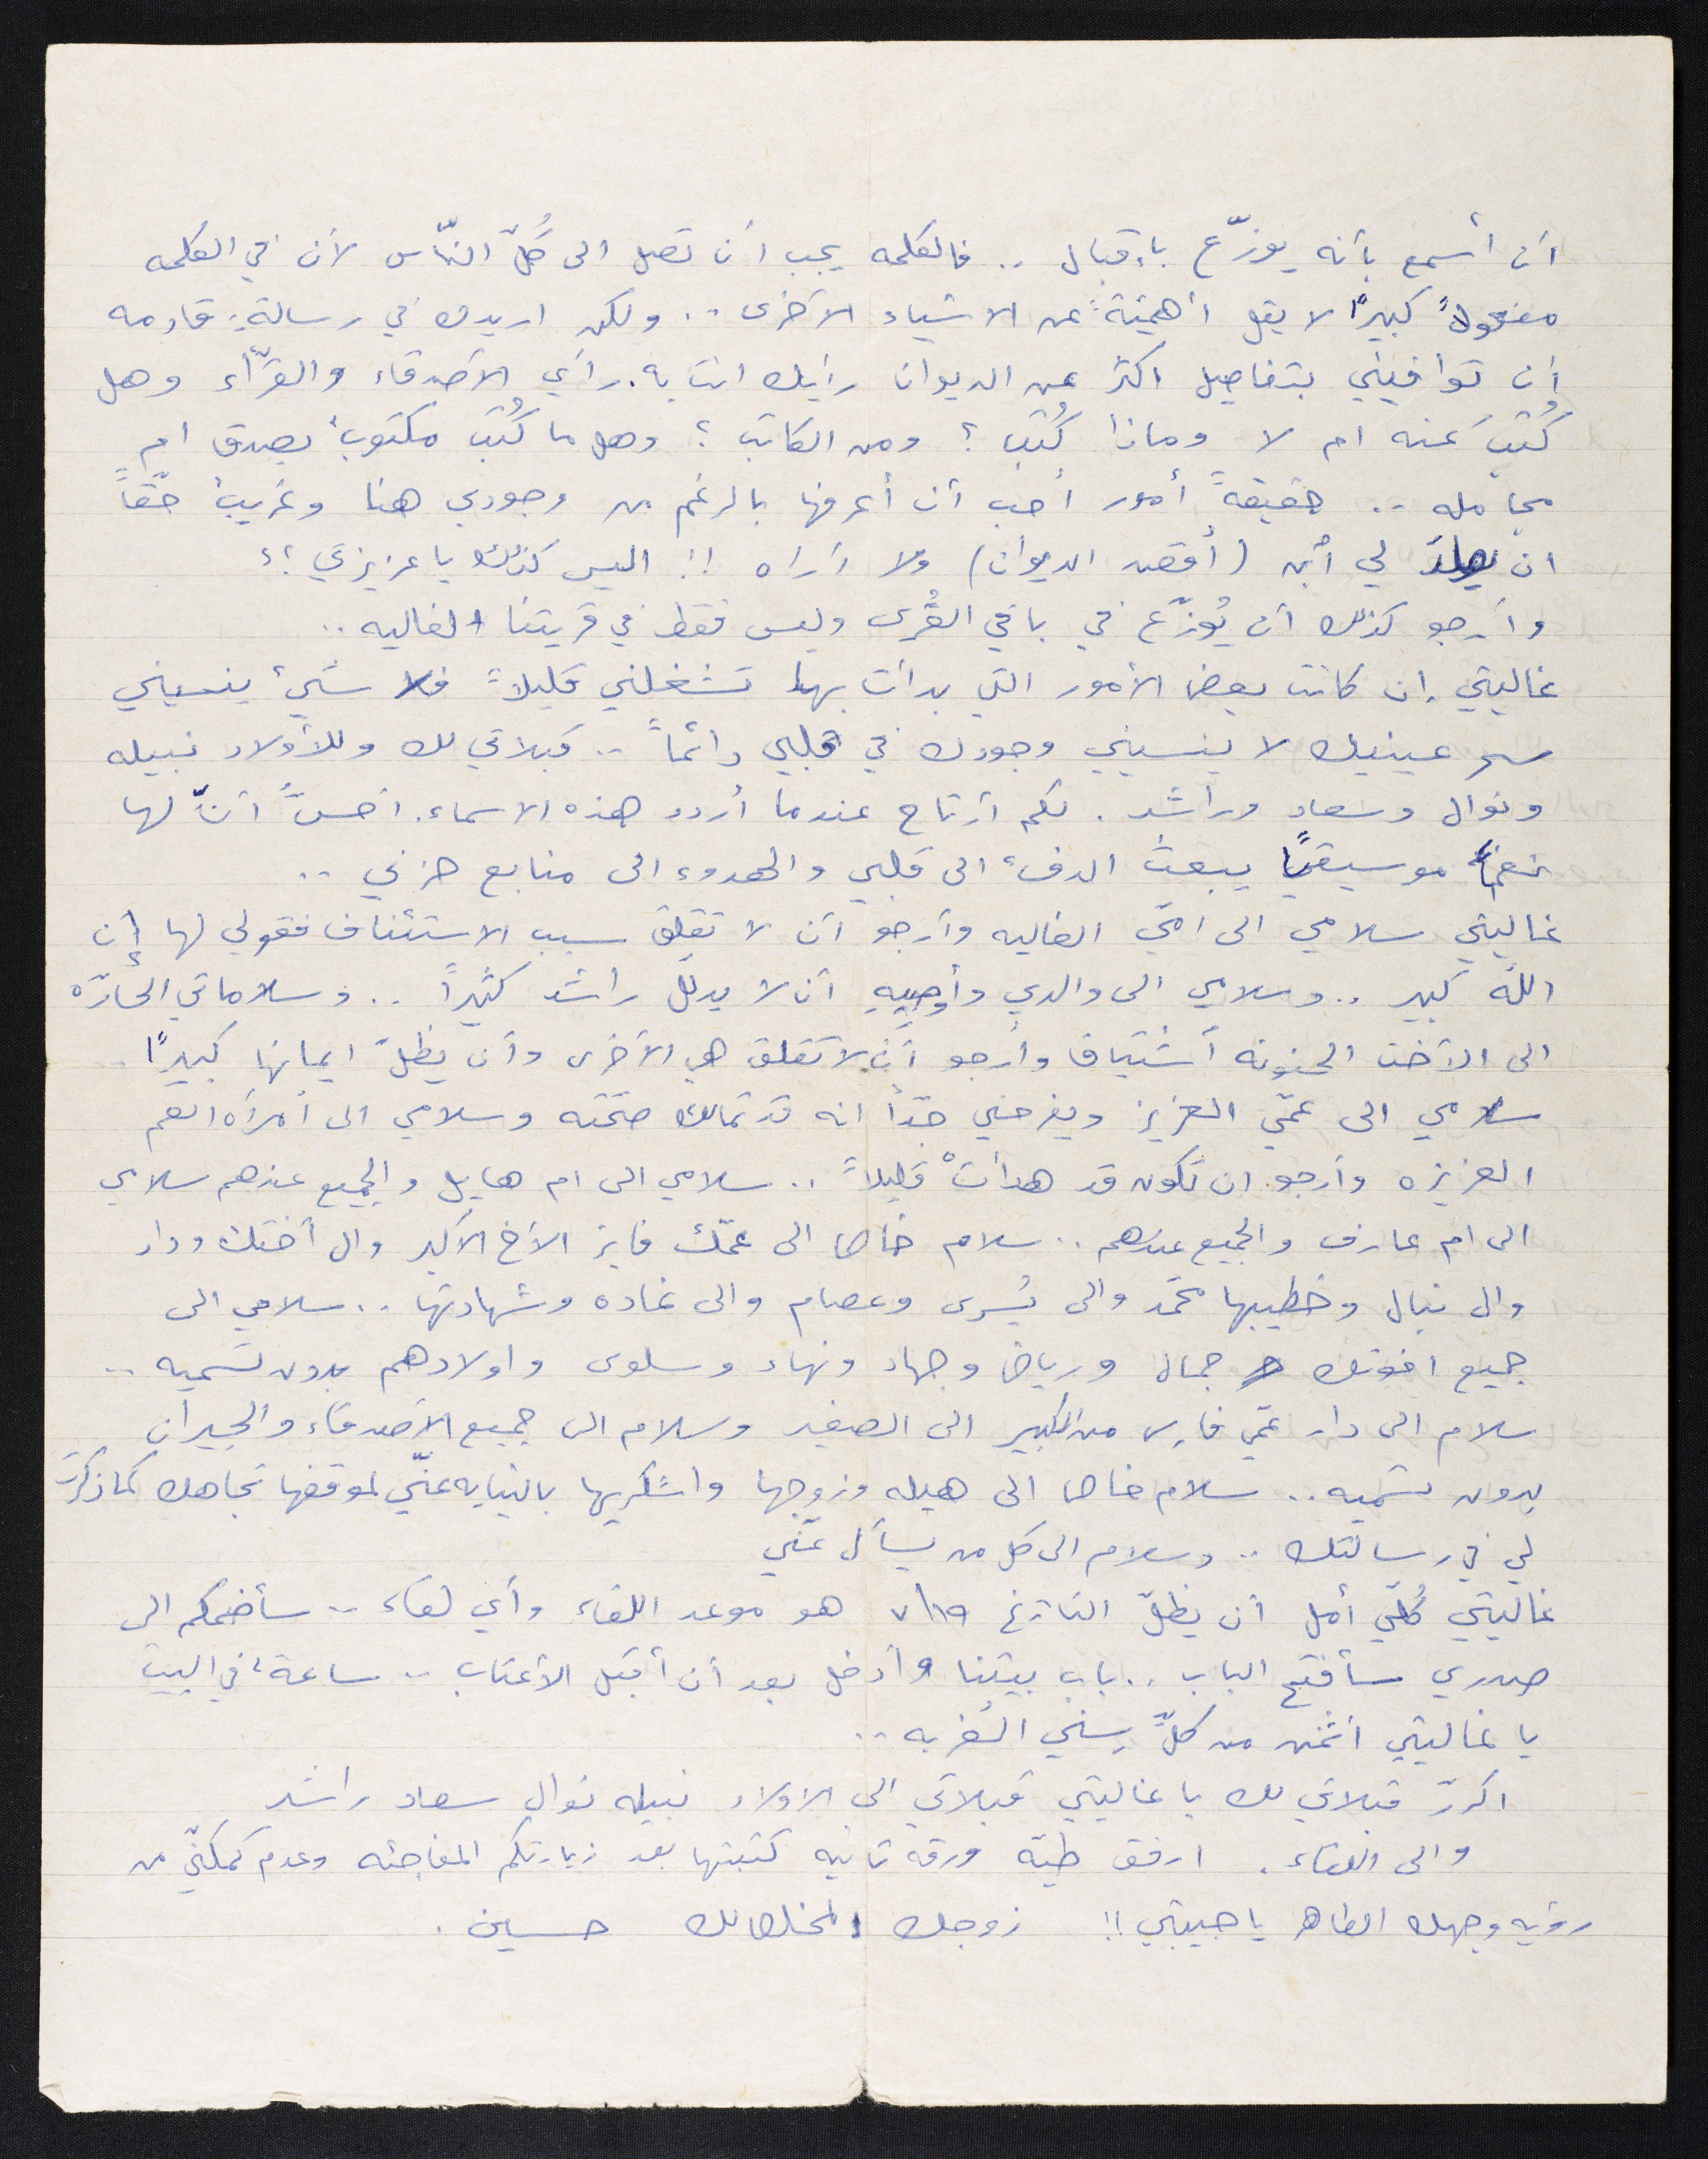 أن أسمع بأنه يوزّع بإقبال .. فالكلمه يجب أن تصل الى كُلّ النّاس لأن في الكلمه
مفعولاً كبيراً لا يقل أهميّةً عن الاشياء الأخرى .. ولكن اريدك في رسالةٍ قادمه
أن توافيني بتفاصيل اكثر عن الديوان رأيك انت به. رأي الأصدقاء والقرّاء وهل
كُتبَ عنه ام لا وماذا كُتب ؟ ومن الكاتب ؟ وهل ما كُتب مكتوبٌ بصدق ام
مجامله .. حقيقةً أمور أحب أن أعرفها بالرغم من وجودي هنا وغريبٌ حقّاً
ان يولد لي أبن (أقصد الديوان) ولا أراه !! اليس كذلك يا عزيزتي ؟؟
وأرجو كذلك أن يُوزّع في باقي القُرى وليس فقط في قريتنا الغاليه ..
غاليتي إن كانت بعض الأمور التي بدأت بها تشغلني قليلاً فلا شيءٌ ينسيني
سحر عينيك لا ينسيني وجودك في قلبي دائماً .. قبلاتي لك وللأولاد نبيله
ونوال وسعاد وراشد . لكم أرتاح عندما أردد هذه الاسماء. أحسّ أنّ لها
نغماً موسيقيّاً يبعث الدفء الى قلبي والهدوء الى منابع حزني ..
غاليتي سلامي الى امّي الغاليه وأرجو أن لا تقلق بسبب الاستئناف فقولي لها إن
اللّه كبير .. وسلامي الى والدي وأوصيه أن لا يدلّل راشد كثيراً .. وسلاماتي الحارّه
الى الأخت الحنونه أشتياق وأرجو أن لا تقلق هي الأخرى وأن يظلّ ايمانها كبيراً ..
سلامي الى عمّي العزيز ويفرحني جدّاً انه قد تمالك صحّته وسلامي الى أمرأه العم
العزيزه وأرجو ان تكون قد هدأتْ قليلاً .. سلامي الى ام هايل والجميع عندهم سلامي
الى ام عارف والجميع عندهم .. سلام خاصا الى عمّك فايز الأخ الأكبر وال أختك وداد
وال نبال وخطيبها محّمد والى يُسرى وعصام والى غاده وشهادتها .. سلامي الى
جميع اخوتك جمال ورياض وجهاد ونهاد وسلوى واولادهم بدون تسميه ..
سلام الى دار عمّي فارس من الكبير الى الصغير وسلام الى جميع الأصدقاء والجيران
بدون تسميه .. سلام خاصا الى هيله وزوجها واشكريها بالنيابه عنّي لموقفها تجاهك كما ذكرت
لي في رسالتك .. وسلام الى كل من يسأل عنّي
غاليتي كُلّي أمل أن يظلّ التاريخ ٧/١٩ هو موعد اللقاء وأي لقاء .. سأضمكم الى
صدري سأفتح الباب .. باب بيتنا وأدخل بعد أن أقبّل الأعتاب .. ساعةٌ في البيت
يا غاليتي اثمن من كلّ سني الغُربه ..
اكرّر قبلاتي لك يا غاليتي قبلاتي الى الاولاد نبيله نوال سعاد راشد
والى اللقاء. ارفق طيّه ورقه ثانيه كتبتها بعد زيارتكم المفاجئه وعدم تمكنّي من
رؤيه وجهك الطاهر يا حبيبتي !! زوجك المخلص لك حسين .